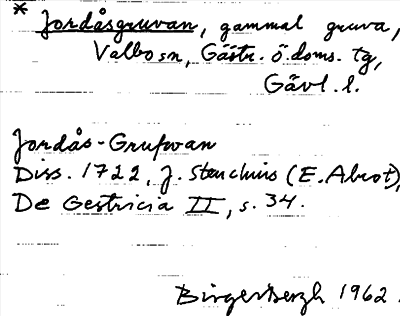 * Jordåsgruvan, gammal gruva,
Valbo sn, Gästr. ö. doms. tg,
Gävl. l.
Jordås-Grufwan
Diss. 1722, J. Stenchius (E. Alrot),
De Gestricia II, s. 34.
Birger Bergh 1962.